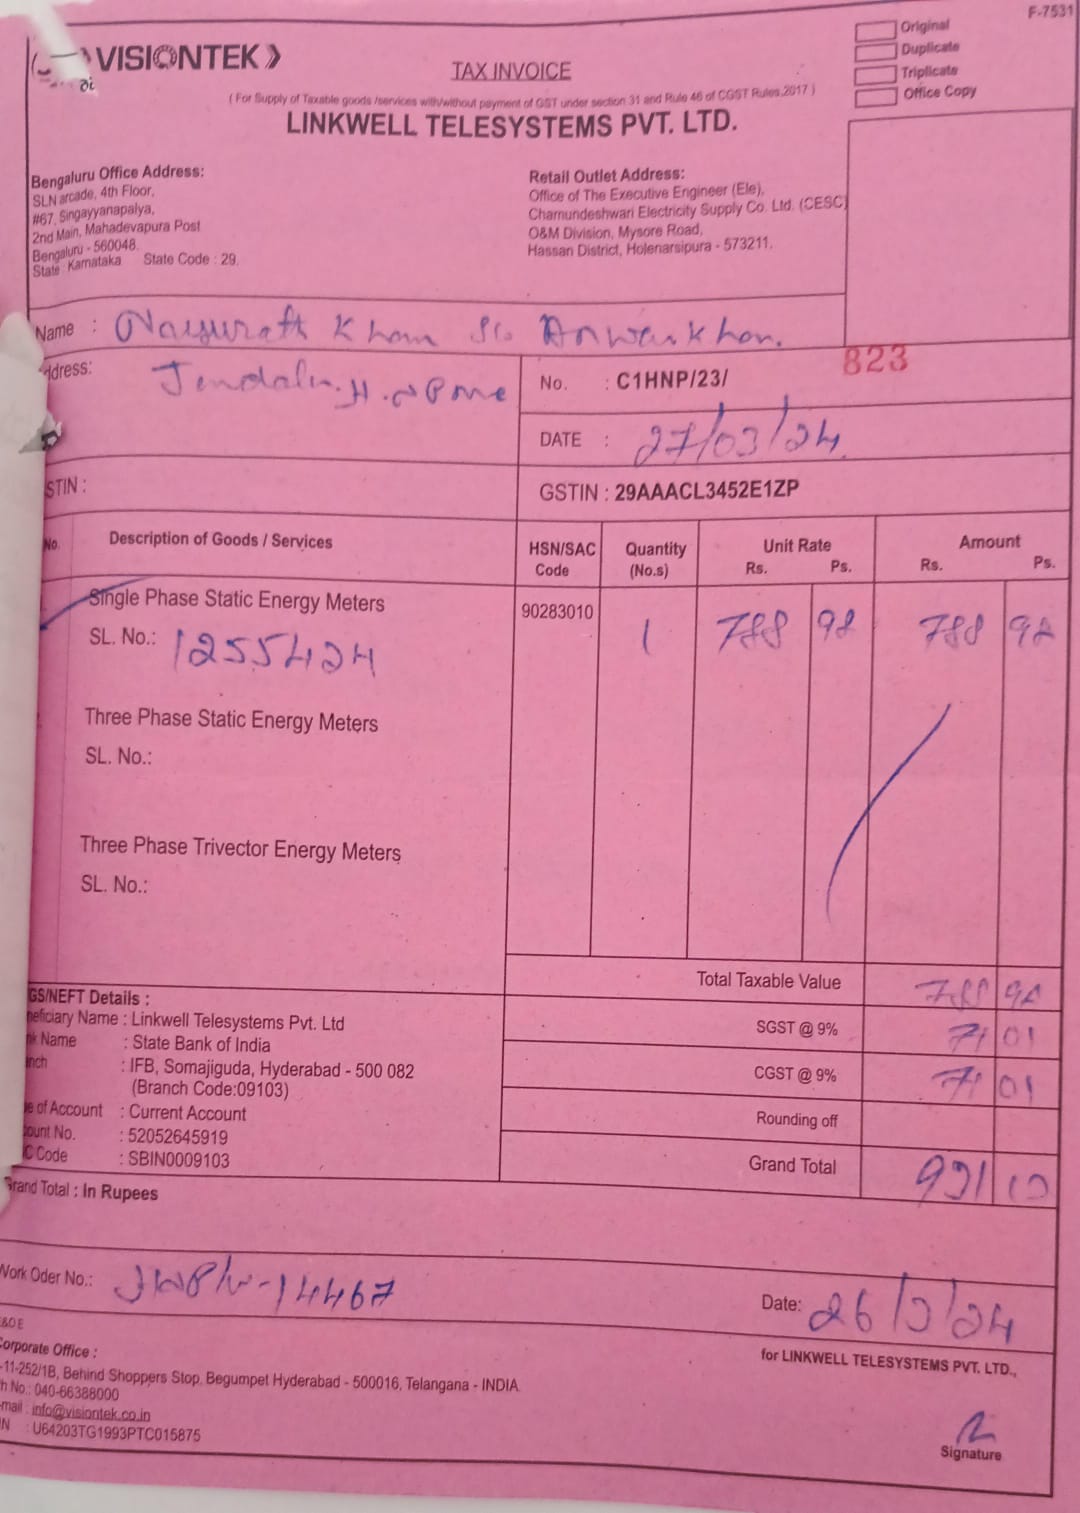 F-7531
Original
Duplicate
Triplicate
Office Copy
VISIONTEK
TAX INVOICE
( For Supply of Taxable goods /services with/without payment of GST under section 31 and Rule 46 of CGST Rules,2017 )
LINKWELL TELESYSTEMS PVT. LTD.
Bengaluru Office Address:
SLN arcade, 4th Floor,
#67, Singayyanapalya,
2nd Main, Mahadevapura Post
Bengaluru - 560048.
State : Karnataka State Code : 29.
Retail Outlet Address:
Office of The Executive Engineer (Ele),
Chamundeshwari Electricity Supply Co. Ltd. (CESC)
O&M Division, Mysore Road,
Hassan District, Holenarsipura - 573211.
Name : Khan S/o Anwar Khan.
ddress:
No. : C1HNP/23/ 823
DATE : 27/03/24
STIN :
GSTIN : 29AAACL3452E1ZP
No. Description of Goods / Services HSN/SAC Code Quantity (No.s) Unit Rate Rs. Ps. Amount Rs. Ps.
Single Phase Static Energy Meters 90283010 1 788 98 788 98
SL. No.: 1255424
Three Phase Static Energy Meters
SL. No.:
Three Phase Trivector Energy Meters
SL. No.:
Total Taxable Value 788 98
SGST @ 9% 71 01
CGST @ 9% 71 01
Rounding off
Grand Total 931 10
GS/NEFT Details :
neficiary Name : Linkwell Telesystems Pvt. Ltd
nk Name : State Bank of India
anch : IFB, Somajiguda, Hyderabad - 500 082
(Branch Code:09103)
e of Account : Current Account
count No. : 52052645919
C Code : SBIN0009103
Grand Total : In Rupees
Work Oder No.: 14467
Date: 26/3/24
E&OE
for LINKWELL TELESYSTEMS PVT. LTD.,
Corporate Office :
-11-252/1B, Behind Shoppers Stop, Begumpet Hyderabad - 500016, Telangana - INDIA.
h No.: 040-66388000
mail : info@visiontek.co.in
N : U64203TG1993PTC015875
Signature